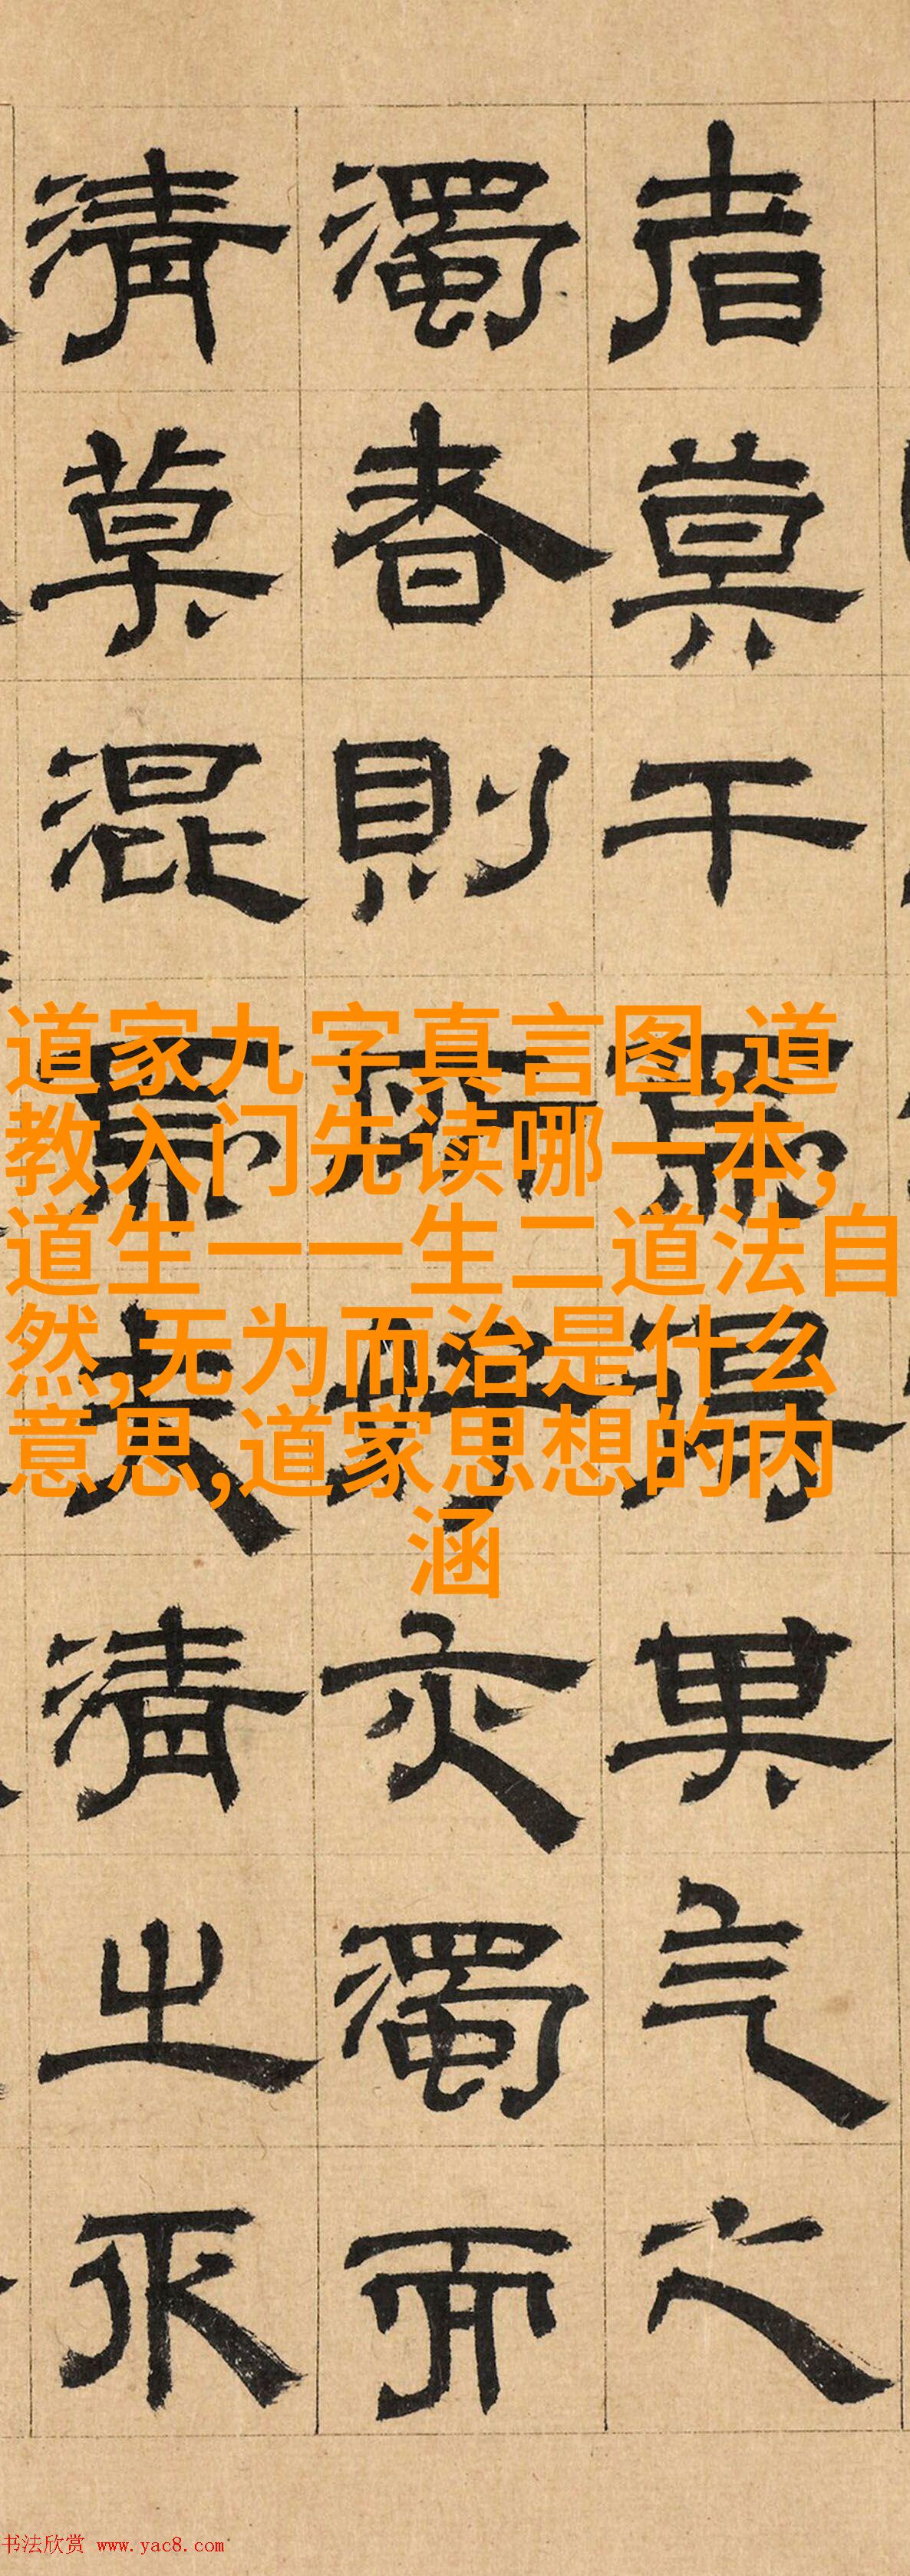 者莫干焉得其气之
濁者則亦濁而
清莫混焉夫清之
道家九字真言图,道
教入门先读哪一本,
道生一一生二道法自
然,无为而治是什么
意思,道家思想的内
涵
书法欣赏 www.yac8.com